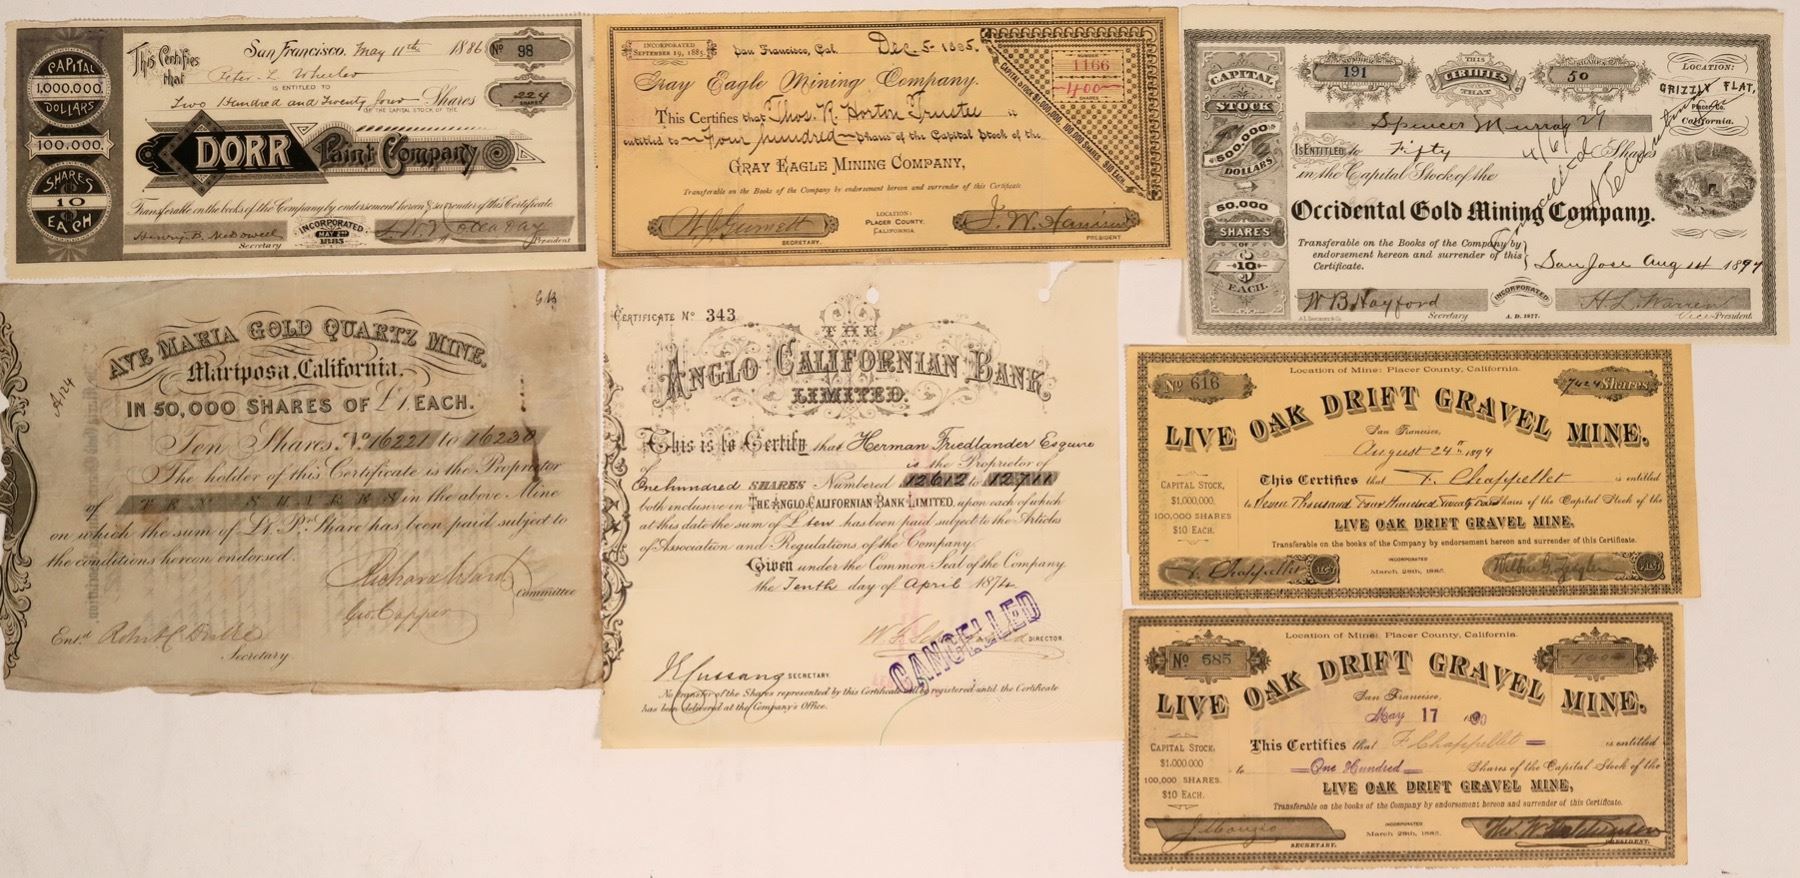 CAPITAL
1,000,000.
DOLLARS
100,000.
SHARES
$10
EACH
This Certifies that
San Francisco, May 11th 1886
No 98
Peter L Wheeler
IS ENTITLED TO
Two Hundred and Twenty four Shares
224
SHARES
OF THE CAPITAL STOCK OF THE
DORR Paint Company
Transferable on the books of the Company by endorsement hereon & surrender of this Certificate
Henry B. McDowell
Secretary
INCORPORATED
MAY 2ND
1885
President
INCORPORATED
SEPTEMBER 19, 1885.
San Francisco, Cal. Dec. 5- 1885.
1166
400
SHARES
Gray Eagle Mining Company.
CAPITAL STOCK $1,000,000, 100,000 SHARES, $10 EACH.
This Certifies that Thos. R. Horton Trustee is
entitled to Four hundred Shares of the Capital Stock of the
GRAY EAGLE MINING COMPANY,
Transferable on the Books of the Company by endorsement hereon and surrender of this Certificate
SECRETARY.
LOCATION:
PLACER COUNTY,
CALIFORNIA.
PRESIDENT
CAPITAL
STOCK
$500,000
DOLLARS
50,000
SHARES
OF
$10
EACH.
NUMBER
191
THIS
CERTIFIES
THAT
SHARES
50
LOCATION:
GRIZZLY FLAT,
Placer Co.
California.
Spencer Murray
IS ENTITLED to Fifty Shares
in the Capital Stock of the
Occidental Gold Mining Company.
Transferable on the Books of the Company by
endorsement hereon and surrender of this
Certificate.
San Jose Aug 14 1897
W B Hayford
Secretary
INCORPORATED
A. D. 1877.
H. L. Warren
Vice President
AVE MARIA GOLD QUARTZ MINE.
Mariposa, California.
IN 50,000 SHARES OF £1. EACH.
A 124
Ten Shares. No 16221 to 16230
The holder of this Certificate is the Proprietor
of TEN SHARES in the above Mine
on which the sum of £1. Pr. Share has been paid subject to
the conditions hereon endorsed.
Richard Ward
Geo. Capper
Committee
Entd.
Secretary
CERTIFICATE No 343
THE
ANGLO CALIFORNIAN BANK
LIMITED.
This is to Certify that Herman Friedlander Esquire
of is the Proprietor of
One hundred SHARES Numbered 12612 to 12711
both inclusive in THE ANGLO-CALIFORNIAN BANK LIMITED, upon each of which
at this date the sum of £ ten has been paid subject to the Articles
of Association and Regulations of the Company.
Given under the Common Seal of the Company
the Tenth day of April 1874
DIRECTOR.
CANCELLED
SECRETARY.
No transfer of the Shares represented by this Certificate will be registered until the Certificate
has been delivered at the Company's Office.
Location of Mine: Placer County, California.
No 616
7424 Shares
LIVE OAK DRIFT GRAVEL MINE.
San Francisco,
August 24th 1894
CAPITAL STOCK,
$1,000,000.
100,000 SHARES
$10 EACH.
This Certifies that F. Chappellet is entitled
to Seven Thousand Four Hundred Twenty four Shares of the Capital Stock of the
LIVE OAK DRIFT GRAVEL MINE,
Transferable on the books of the Company by endorsement hereon and surrender of this Certificate.
F. Chappellet
SECT
INCORPORATED
March 28th, 1885.
PREST
Location of Mine: Placer County, California.
No 585
100
LIVE OAK DRIFT GRAVEL MINE.
San Francisco,
May 17 1890
CAPITAL STOCK,
$1,000,000
100,000 SHARES.
$10 EACH.
This Certifies that F. Chappellet is entitled
to One Hundred Shares of the Capital Stock of the
LIVE OAK DRIFT GRAVEL MINE,
Transferable on the books of the Company by endorsement hereon and surrender of this Certificate.
SECRETARY.
INCORPORATED
March 28th, 1885.
PRESIDENT.